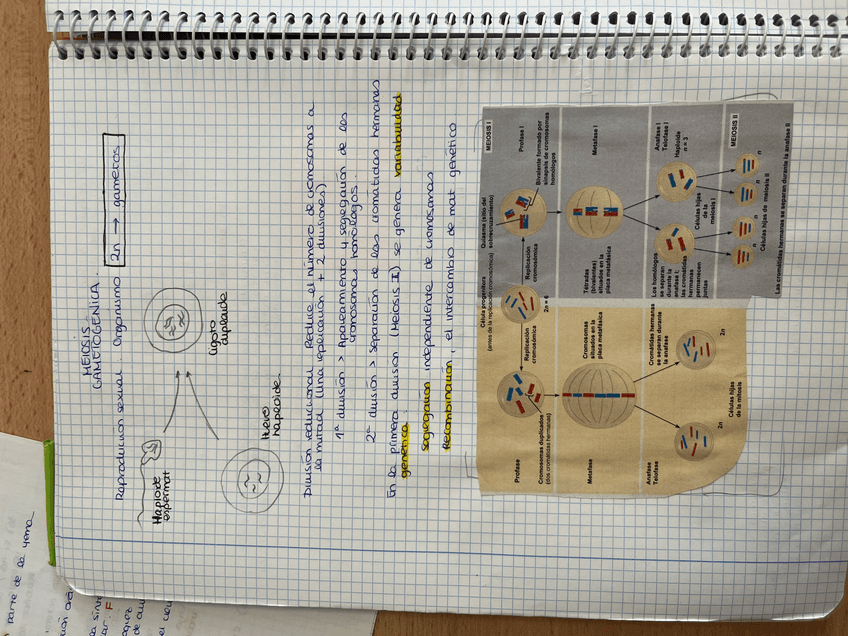 MEIOSIS -
GAMETOGENICA
Reproducción sexual. Organismo 2n → gametos
Haploide
espermat
Huevo
haploide.
Cigoto
diploide
División reduccional. Reduce el número de cromosomas a
la mitad (una replicación + 2 divisiones)
1ª división > Apareamiento y segregación de los
cromosomas homólogos.
2ª división > separación de las cromátidas hermanas
En la primera división (Meiosis I) se genera variabilidad
genética:
segregación independiente de cromosomas
Recombinación, el intercambio de mat genético
Célula progenitora
(antes de la replicación cromosómica)
Quiasma (sitio del
sobrecruzamiento)
MEIOSIS I
Profase
Replicación
cromosómica
2n = 6
Replicación
cromosómica
Profase I
Cromosomas duplicados
(dos cromátidas hermanas)
Bivalente formado por
sinapsis de cromosomas
homólogos
Metafase
Cromosomas
situados en la
placa metafásica
Tétradas
(bivalentes)
situados en la
placa metafásica
Metafase I
Anafase
Telofase
Cromátidas hermanas
se separan durante
la anafase
Los homólogos
se separan
durante la
anafase I;
las cromátidas
hermanas
permanecen
juntas
Anafase I
Telofase I
Haploide
n = 3
Células hijas
de la
meiosis I
2n
2n
Células hijas
de la mitosis
MEIOSIS II
n
n
n
n
Células hijas de meiosis II
Las cromátidas hermanas se separan durante la anafase II
parte de la yema